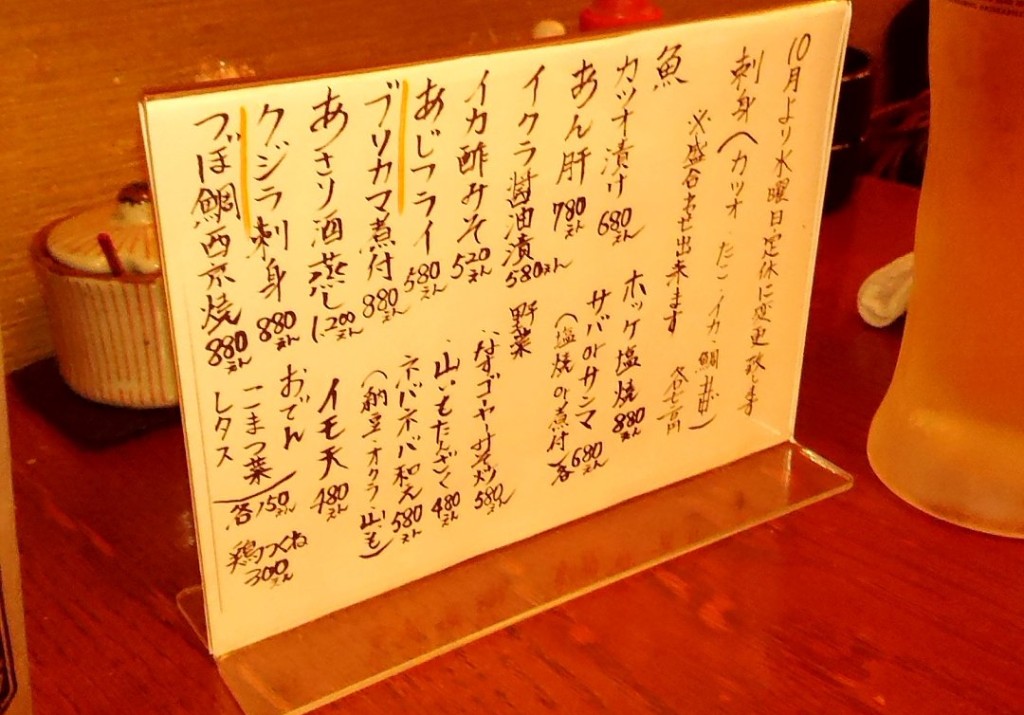 10月より水曜日定休に変更致します
刺身(カツオ・たこ・イカ・鯛
※盛合わせ出来ます
魚
カツオ漬け 680えん
あん肝 780えん
イクラ醤油漬 580えん
イカ酢みそ 520えん
あじフライ 580えん
ブリカマ煮付 880えん
あさり酒蒸し 1,200えん
クジラ刺身 880えん
つぼ鯛西京焼 880えん
ホッケ塩焼 880えん
サバorサンマ 各680えん
(塩焼or煮付)
野菜
なすゴーヤーみそ炒 580えん
山いもたんざく 480えん
ネバネバ和え 580えん
(納豆・オクラ・山いも)
イモ天 480えん
おでん
こまつ菜
レタス
各150えん
鶏つくね
300えん